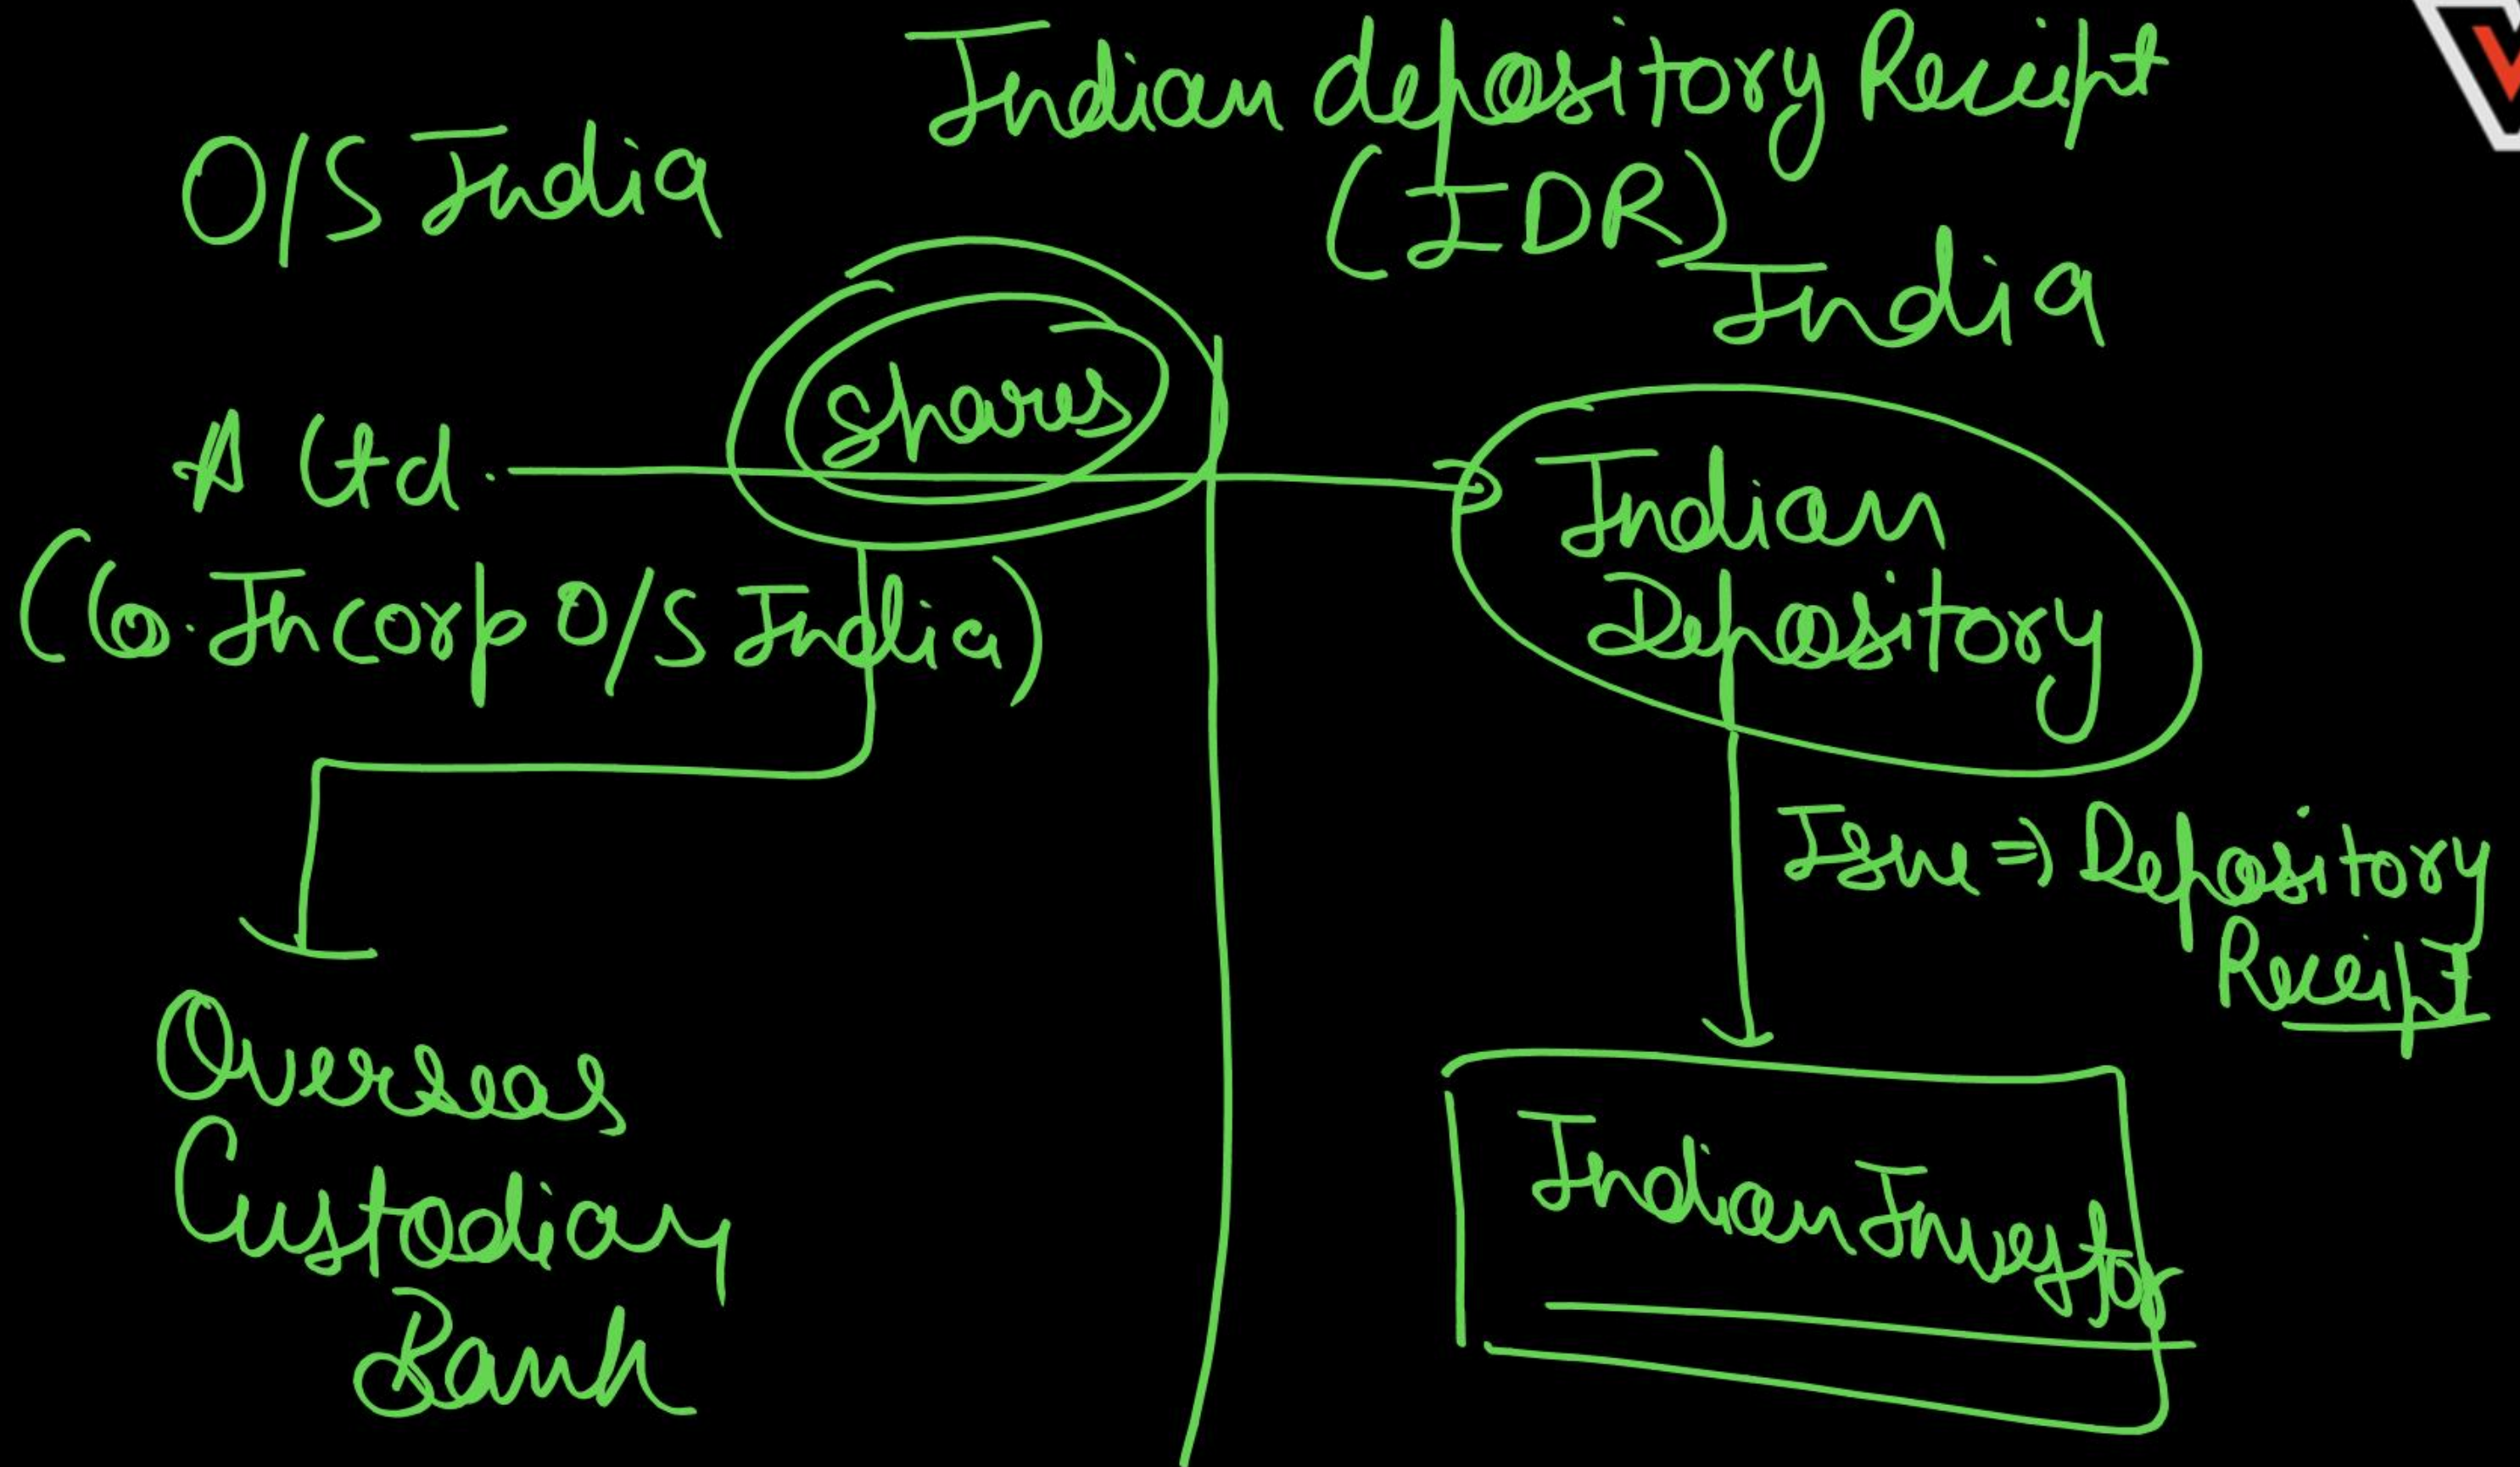 Indian depository Receipt
(IDR)
O/S India
India
shares
A Ltd.
(Co. Incorp O/S India)
Indian
Depository
Issue ⇒ Depository
Receipt
Overseas
Custodian
Bank
Indian Investor